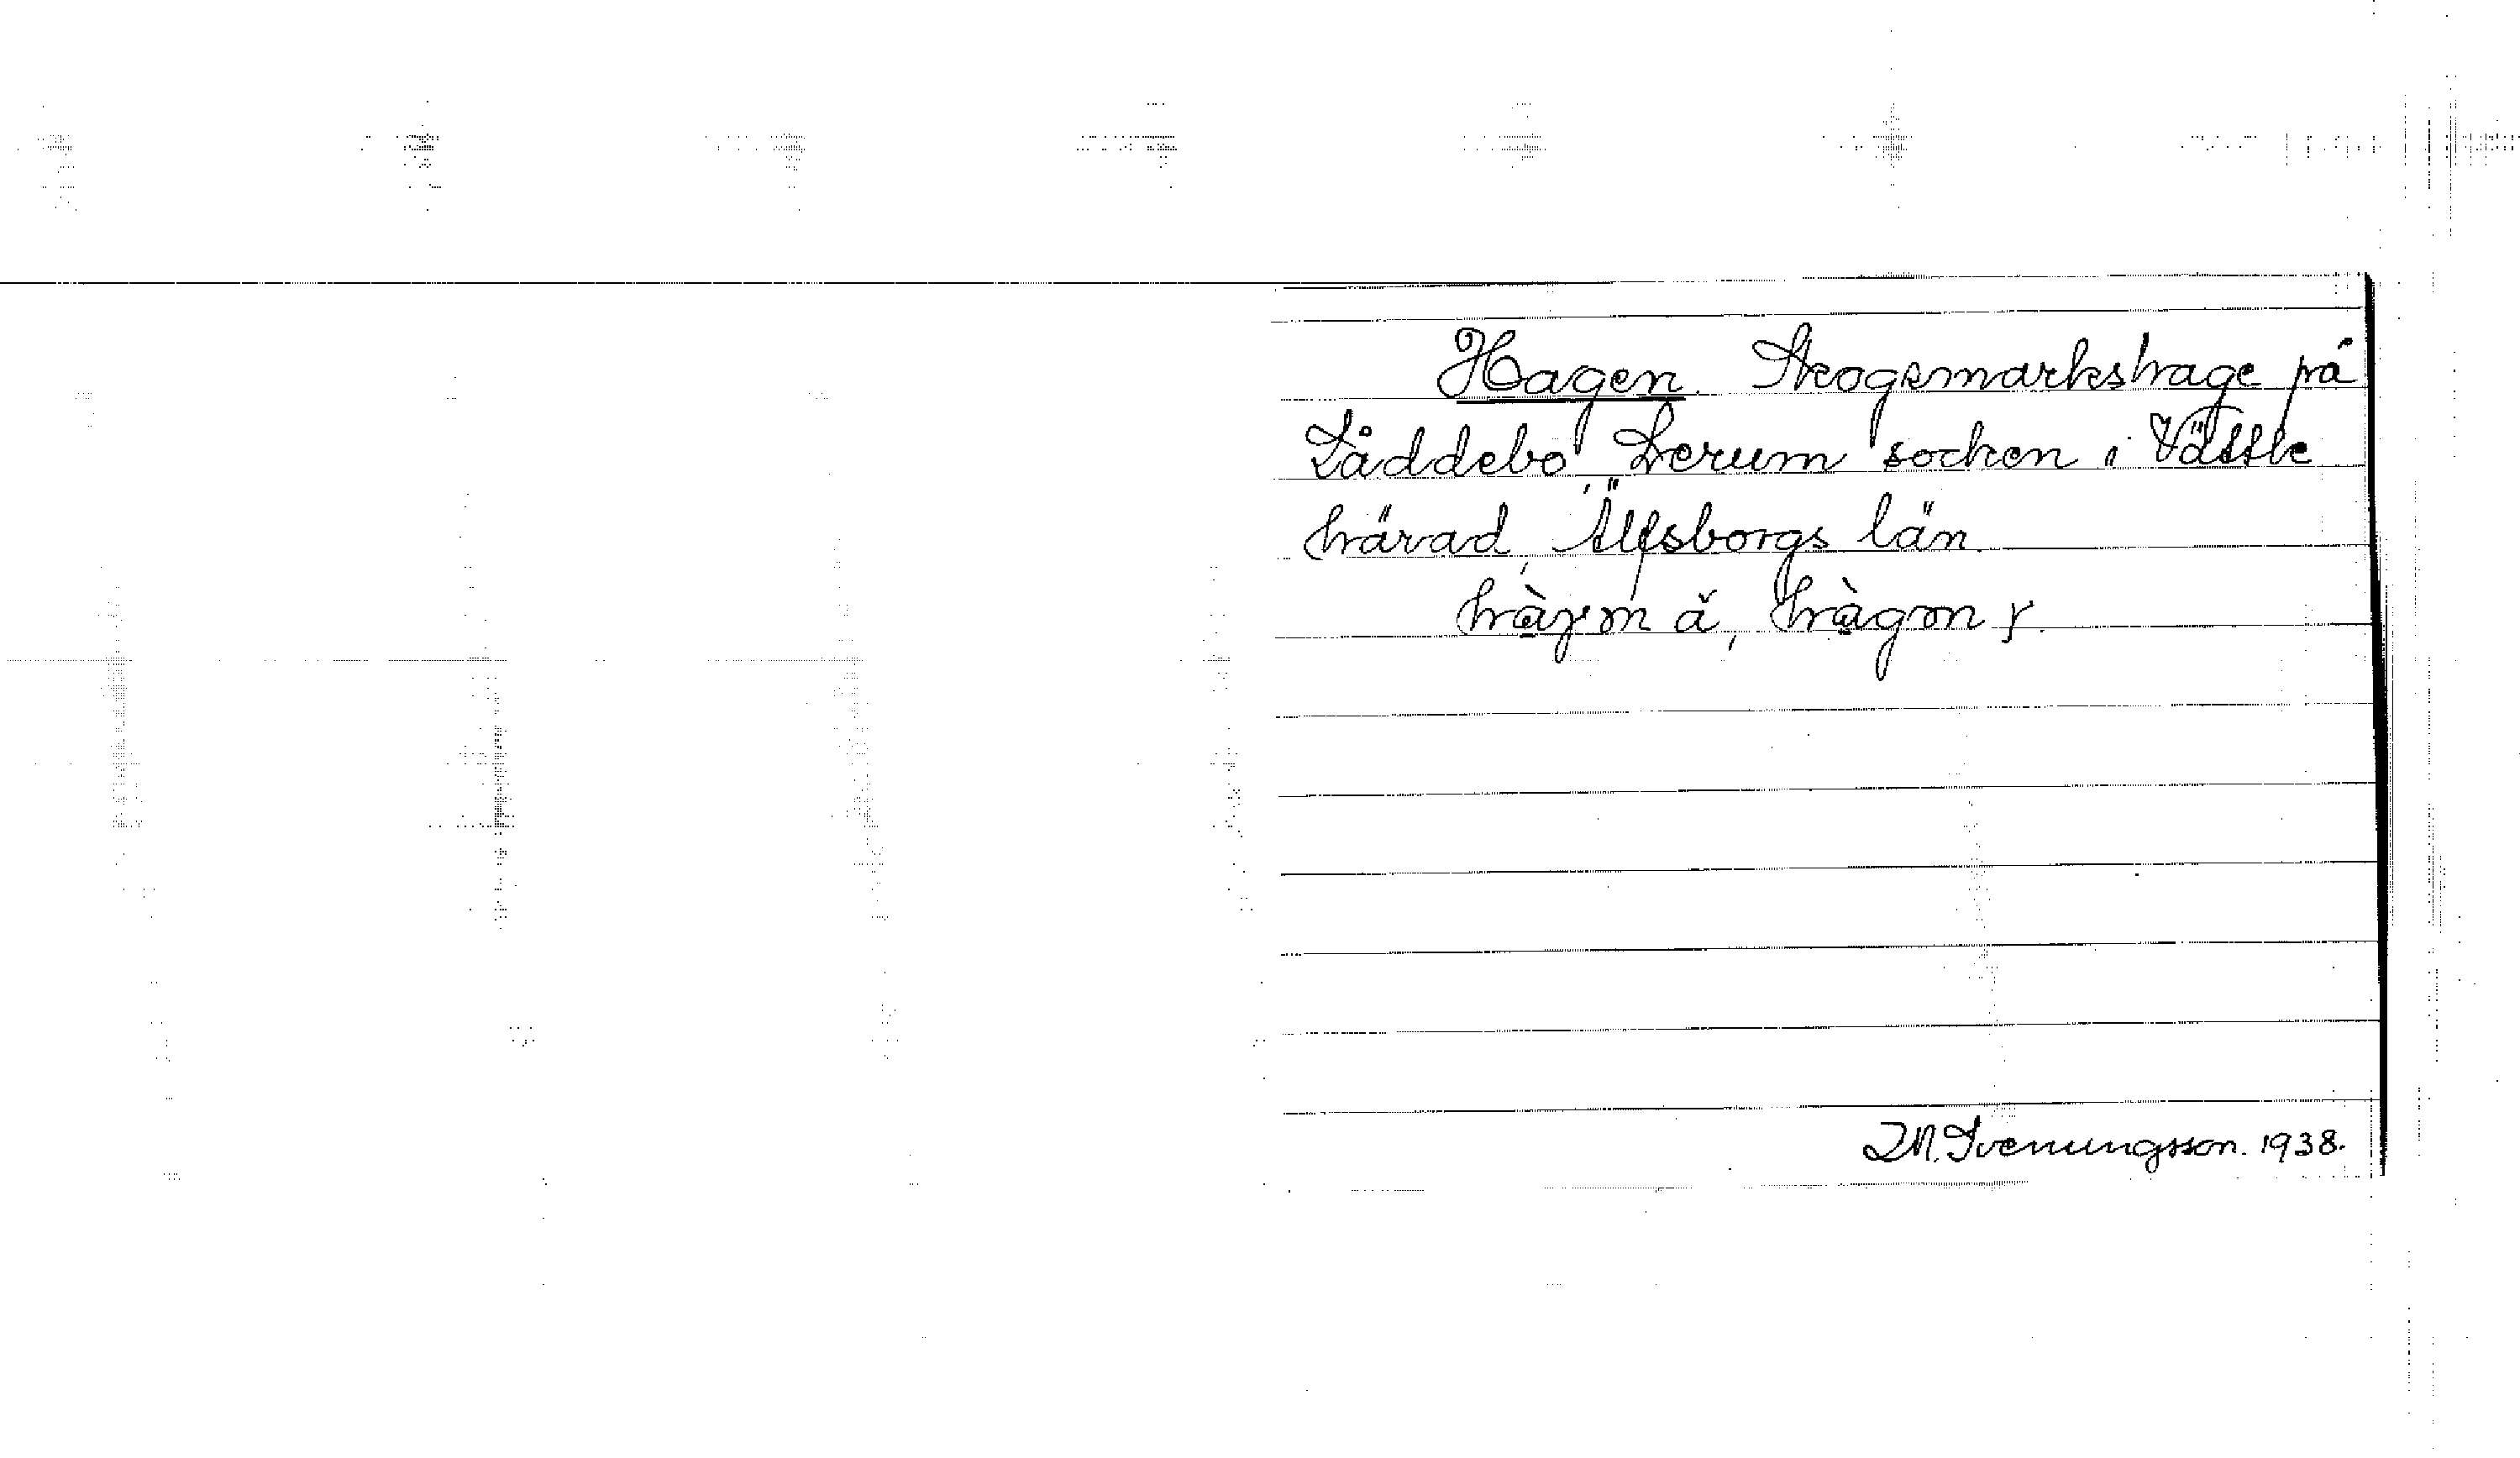 Hagen. Skogsmarkshage på
Låddebo Lerum socken i Vättle
härad, Älfsborgs län.
hàgɘn ä, hàgɘn y.
I. M. Svenungsson. 1938.